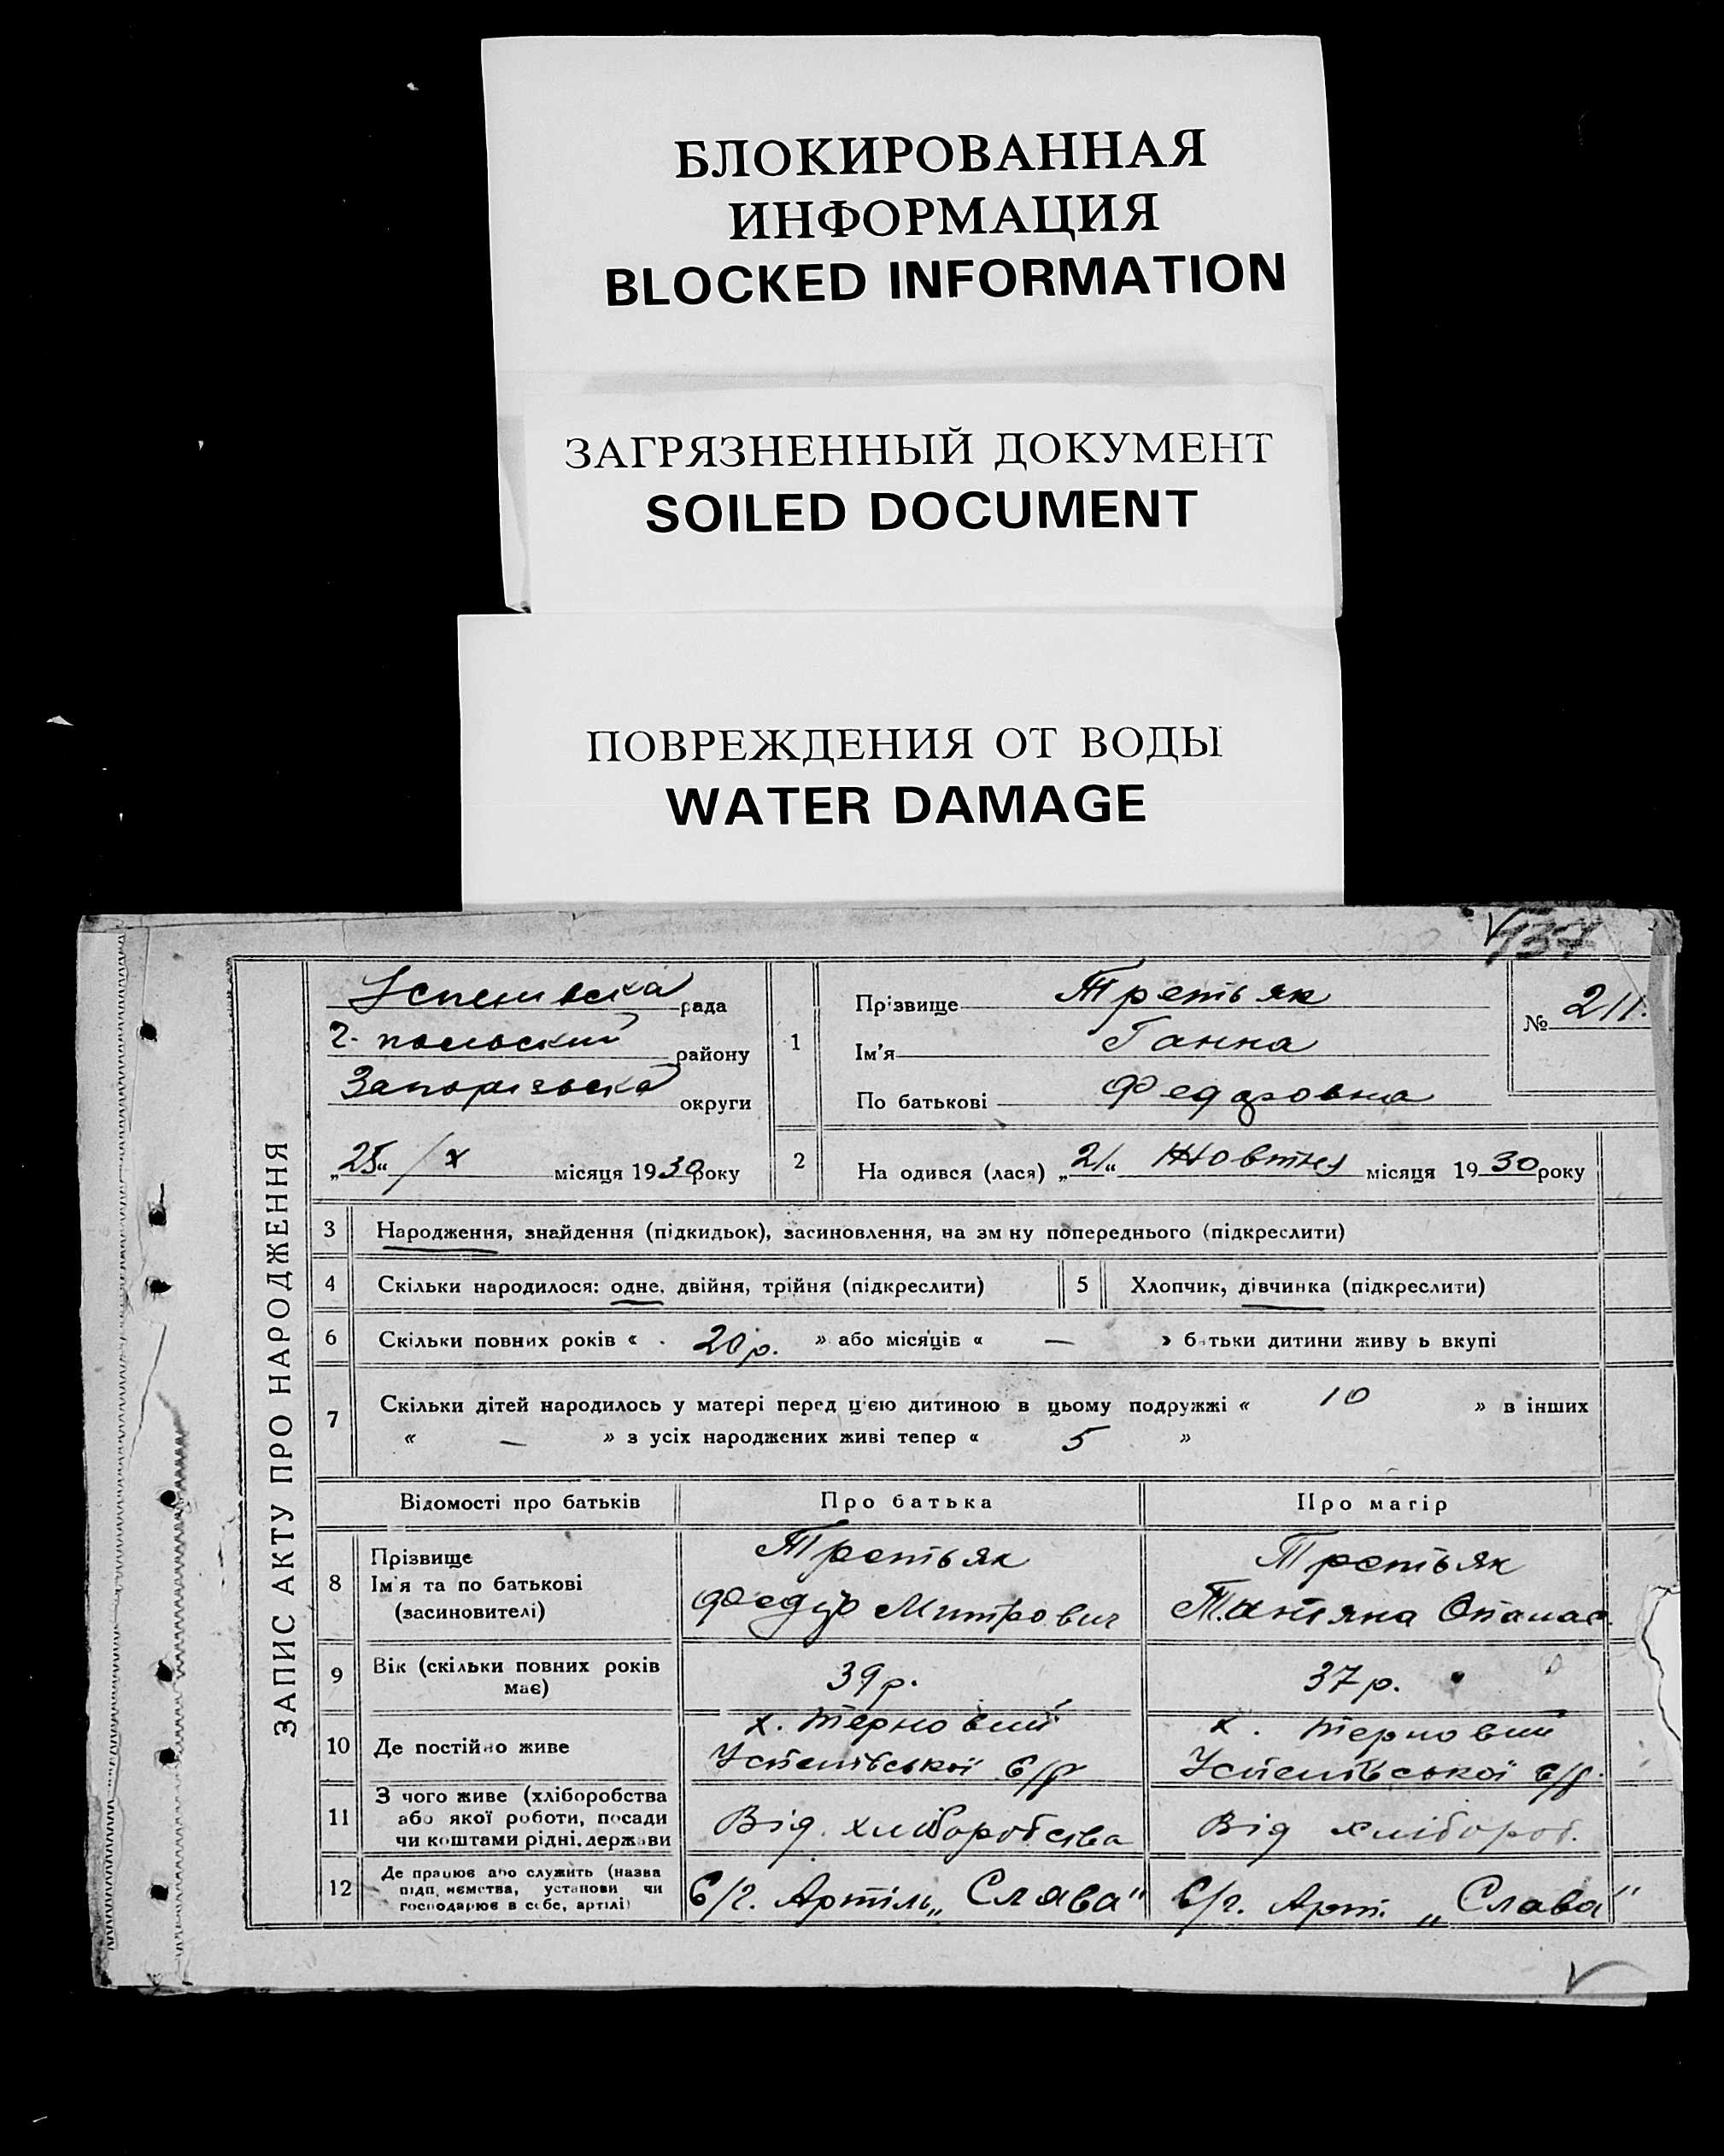 БЛОКИРОВАННАЯ
ИНФОРМАЦИЯ
BLOCKED INFORMATION
ЗАГРЯЗНЕННЫЙ ДОКУМЕНТ
SOILED DOCUMENT
ПОВРЕЖДЕНИЯ ОТ ВОДЫ
WATER DAMAGE
137
ЗАПИС АКТУ ПРО НАРОДЖЕННЯ
Успенивска рада
району
Запорізька округи
„25“ /X місяця 1930 року
1
Прізвище Третьяк
Ім'я Ганна
По батькові Федоровна
№ 211.
2 На одився (лася) „21“ Жовтня місяця 1930 року
3 Народження, знайдення (підкидьок), засиновлення, на зм ну попереднього (підкреслити)
4 Скільки народилося: одне, двійня, трійня (підкреслити)
5 Хлопчик, дівчинка (підкреслити)
6 Скільки повних років « 20 р. » або місяців « — » батьки дитини живу ь вкупі
7 Скільки дітей народилось у матері перед цією дитиною в цьому подружжі « 10 » в інших
« — » з усіх народжених живі тепер « 5 »
Відомості про батьків Про батька Про матір
8 Прізвище
Ім'я та по батькові
(засиновителі)
Третьяк
Федір Митрович
Третьяк
Татяна Опанас.
9 Вік (скільки повних років
має)
39 р. 37 р.
10 Де постійно живе
х. Терновий
Успенівської с/р
х. Терновий
Успенівської с/р.
11 З чого живе (хліборобства
або якої роботи, посади
чи коштами рідні, держави
Від хліборобства Від хлібороб.
12 Де працює або служить (назва
підп. иємства, установи чи
господарює в себе, артілі)
С/г. Артіль „Слава“ С/г. Арт. „Слава“